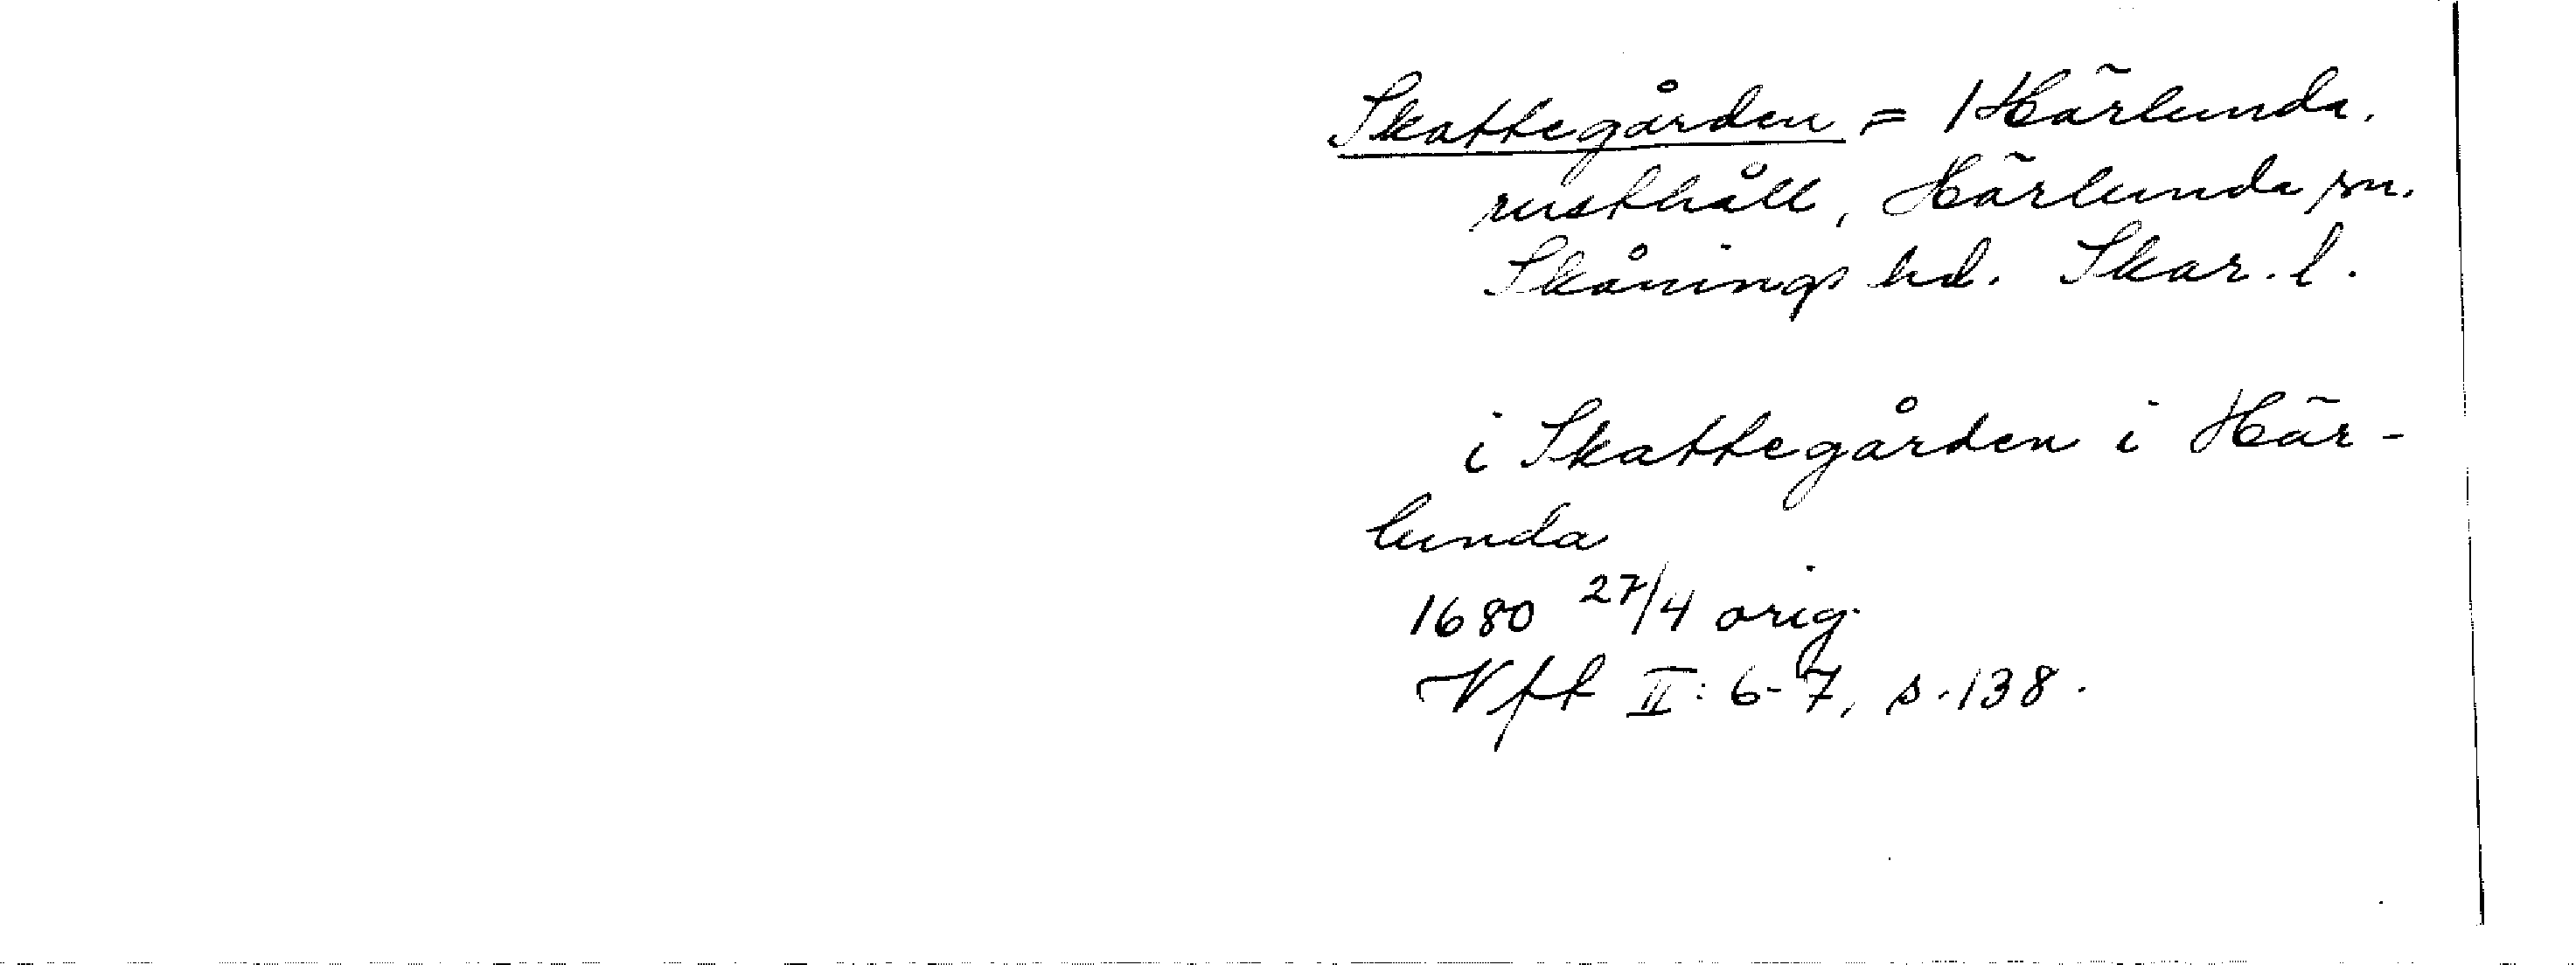 Skattegården = Härlunda.
rusthåll, Härlunda sn.
Skånings hd. Skar. l.
i Skattegården i Här-
lunda
1680 27/4 orig.
Vft II: 6-7, s. 138.